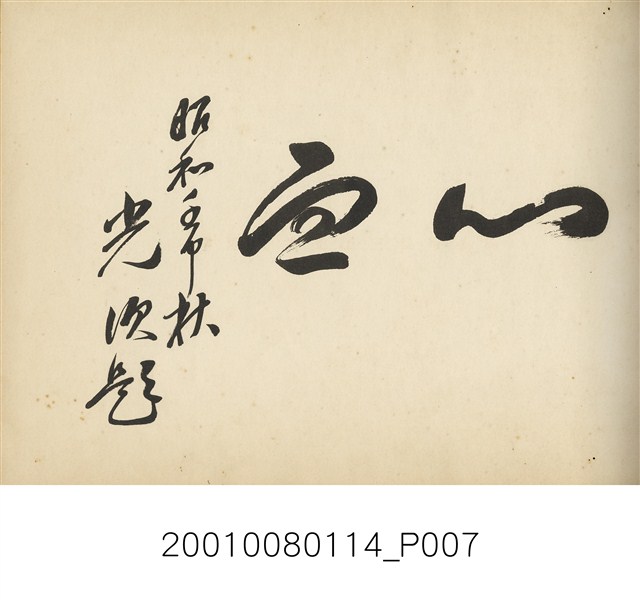 心血
昭和壬申秋
光次題
20010080114_P007